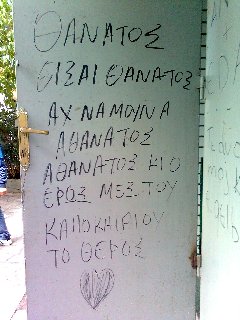 ΘΑΝΑΤΟΣ
ΕΙΣΑΙ ΘΑΝΑΤΟΣ
ΑΧ ΝΑΜΟΥΝΑ
ΑΘΑΝΑΤΟΣ
ΑΘΑΝΑΤΟΣ ΚΙ Ο
ΕΡΩΣ ΜΕΣ ΤΟΥ
ΚΑΛΟΚΑΙΡΙΟΥ
ΤΟ ΘΕΡΟΣ